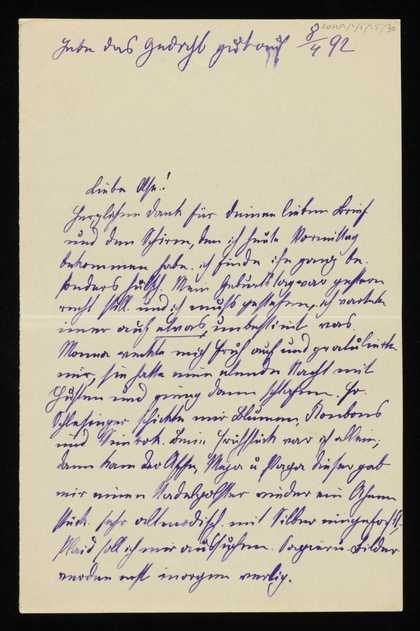 Hebe das Gedicht gut auf 8/4 92
Liebe
Herzlichen Dank für Deinen lieben Brief
und den Schirm, den ich heute Vormittag
bekommen habe. ich finde ihn ganz be-
sonders hübsch. Mein Geburtstag war gestern
recht still und ich muß gestehen, ich wartete
immer auf etwas, unbestimmt was.
Mama weckte mich früh auf und gratulierte
mir, sie hatte eine elende Nacht mit
Husten und ging dann schlafen. Fr.
Schlesinger schickte mir Blumen, Bonbons
und Beim Frühstück war ich allein;
dann kam Maja u Papa dieser gab
mir einen wieder ein
Stück. sehr altmodisch mit Silber eingefaßt,
Kleid soll ich mir aussuchen. Bilder
werden erst morgen fertig.